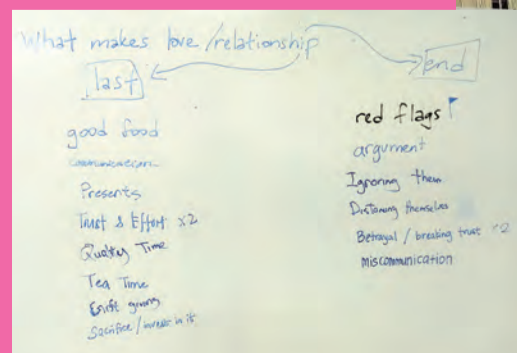 What makes love/relationship
last
end
good food
communication
Presents
Trust & Effort x2
Quality Time
Tea Time
Gift giving
Sacrifice / invest in it
red flags
argument
Ignoring them
Distancing themselves
Betrayal / breaking trust x2
miscommunication